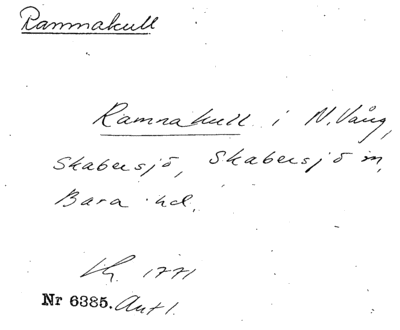 Rammakull
Ramnakull i N. Vång,
Skabersjö, Skabersjö sn,
Bara hd.
Lh. 1771
Nr 6385. Ant 1.